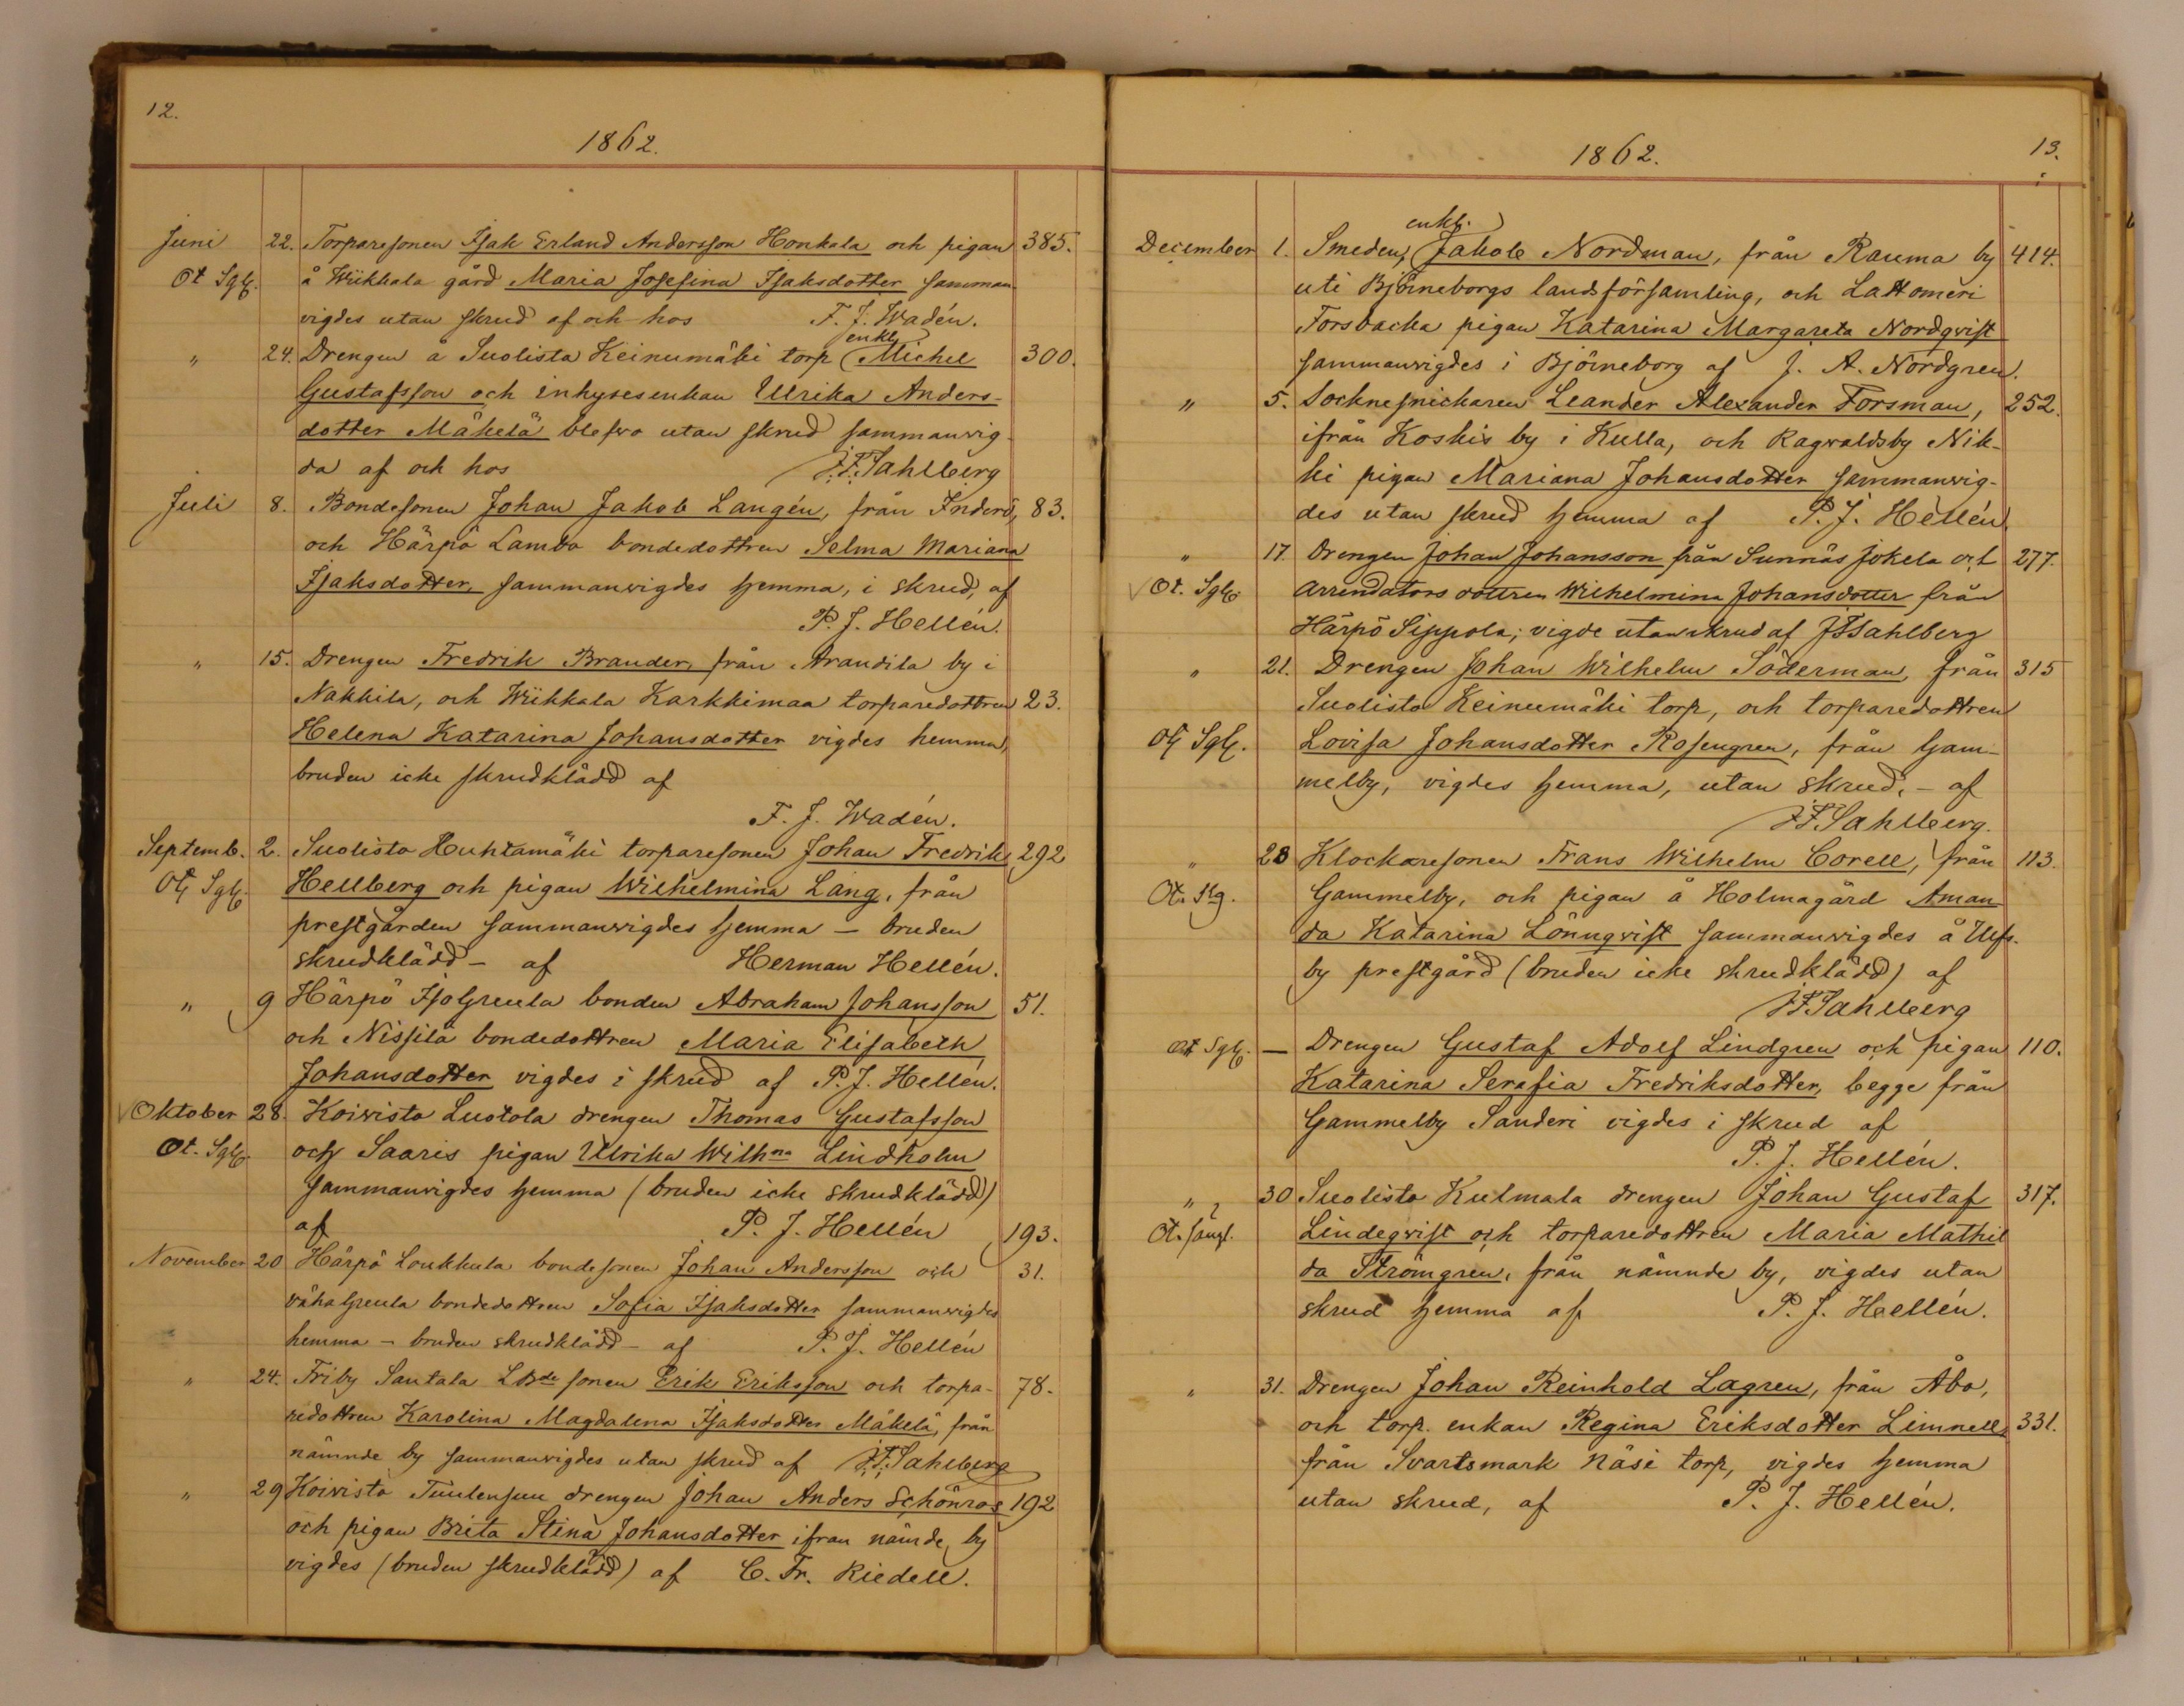 12.
1862.
Juni 22. Torparesonen Isak Erland Andersson Honkala och pigan 385.
Ot Sgl. å Wiikkala gård Maria Josefina Isaksdotter samman
vigdes utan skrud af och hos F. J. Wadén.
enkl.
" 24. Drengen å Suolista Keinumäki torp Michel 300.
Gustafsson och inhysesenkan Ulrika Anders-
dotter Mäkelä blefvo utan skrud sammanvig
da af och hos J.F. Sahlberg
Juli 8. Bondesonen Johan Jakob Langén, från Inderö, 83.
och Härpö Lambo bondedottren Selma Mariana
Isaksdotter, sammanvigdes hemma, i skrud, af
P. J. Hellén.
" 15. Drengen Fredrik Brander, från Arandila by i
Nakkila, och Wiikkala Karkkimaa torparedottren 23.
Helena Katarina Johansdotter vigdes hemma,
bruden icke skrudklädd af
F. J. Wadén.
Septemb. 2. Suolisto Huhtamäki torparesonen Johan Fredrik 292
Oh Sgl. Hellberg och pigan Wilhelmina Lang, från
prestgården sammanvigdes hemma – bruden
skrudklädd – af Herman Hellén.
" 9 Härpö Isogreula bonden Abraham Johansson 51.
och Nissilä bondedottren Maria Elisabeth
Johansdotter vigdes i skrud af P. J. Hellén.
Oktober 28. Koivisto Luotola drengen Thomas Gustafsson
Ot. Sgl. och Saaris pigan Ulrika Wilhna Lindholm
sammanvigdes hemma (bruden icke skrudklädd)
af P. J. Hellén 193.
November 20 Härpö Loukkula bondesonen Johan Andersson och 31.
vähägreula bondedottren Sofia Isaksdotter sammanvigdes
hemma – bruden skrudklädd – af P. J. Hellén
" 24. Friby Santala LBde sonen Erik Eriksson och torpa- 78.
redottren Karolina Magdalena Isaksdotter Mäkelä, från
nämnde by sammanvigdes utan skrud af J.F. Sahlberg
" 29 Koivisto Tuulensuu drengen Johan Anders Schönros 192
och pigan Brita Stina Johansdotter ifrån nämde by
vigdes (bruden skrudklädd) af C. Fr. Riedell.
13.
1862.
enkl.
December 1. Smeden, Jakob Nordman, från Rauma by 414.
uti Björneborgs landsförsamling, och Lattomeri
Forsbacka pigan Katarina Margareta Nordqvist
sammanvigdes i Björneborg af J. A. Nordgren.
" 5. Socknesnickaren Leander Alexander Forsman, 252.
ifrån Koskis by i Kulla, och Ragvaldsby Nik-
ki pigan Mariana Johansdotter sammanvig-
des utan skrud hemma af P. J. Hellén
" 17. Drengen Johan Johansson från Sunnäs Jokela och 277.
Ot. Sgl. Arrendators dottren Wilhelmina Johansdotter från
Härpö Sippola; vigde utan skrud af JFSahlberg
" 21. Drengen Johan Wilhelm Söderman, från 315
Suolisto Keinumäki torp, och torparedottren
Oh Sgl. Lovisa Johansdotter Rosengren, från Gam-
melby, vigdes hemma, utan skrud, – af
J.F. Sahlberg.
" 28 Klockaresonen Frans Wilhelm Corell, från 113.
Ot. Sg. Gammelby, och pigan å Holmagård Aman
da Katarina Lönnqvist sammanvigdes å Ulfs-
by prestgård (bruden icke skrudklädd) af
J.F. Sahlberg
Ot Sgl. — Drengen Gustaf Adolf Lindgren och pigan 110.
Katarina Serafia Fredriksdotter, begge från
Gammelby Sanderi vigdes i skrud af
P. J. Hellén.
" 30 Suolisto Kulmala drengen Johan Gustaf 317.
Ot. Sängl. Lindeqvist och torparedottren Maria Mathil
da Strömgren, från nämnde by, vigdes utan
skrud hemma af P. J. Hellén.
" 31. Drengen Johan Reinhold Lagren, från Åbo,
och torp. enkan Regina Eriksdotter Limnell, 331.
från Svartsmark Näsi torp, vigdes hemma
utan skrud, af P. J. Hellén.